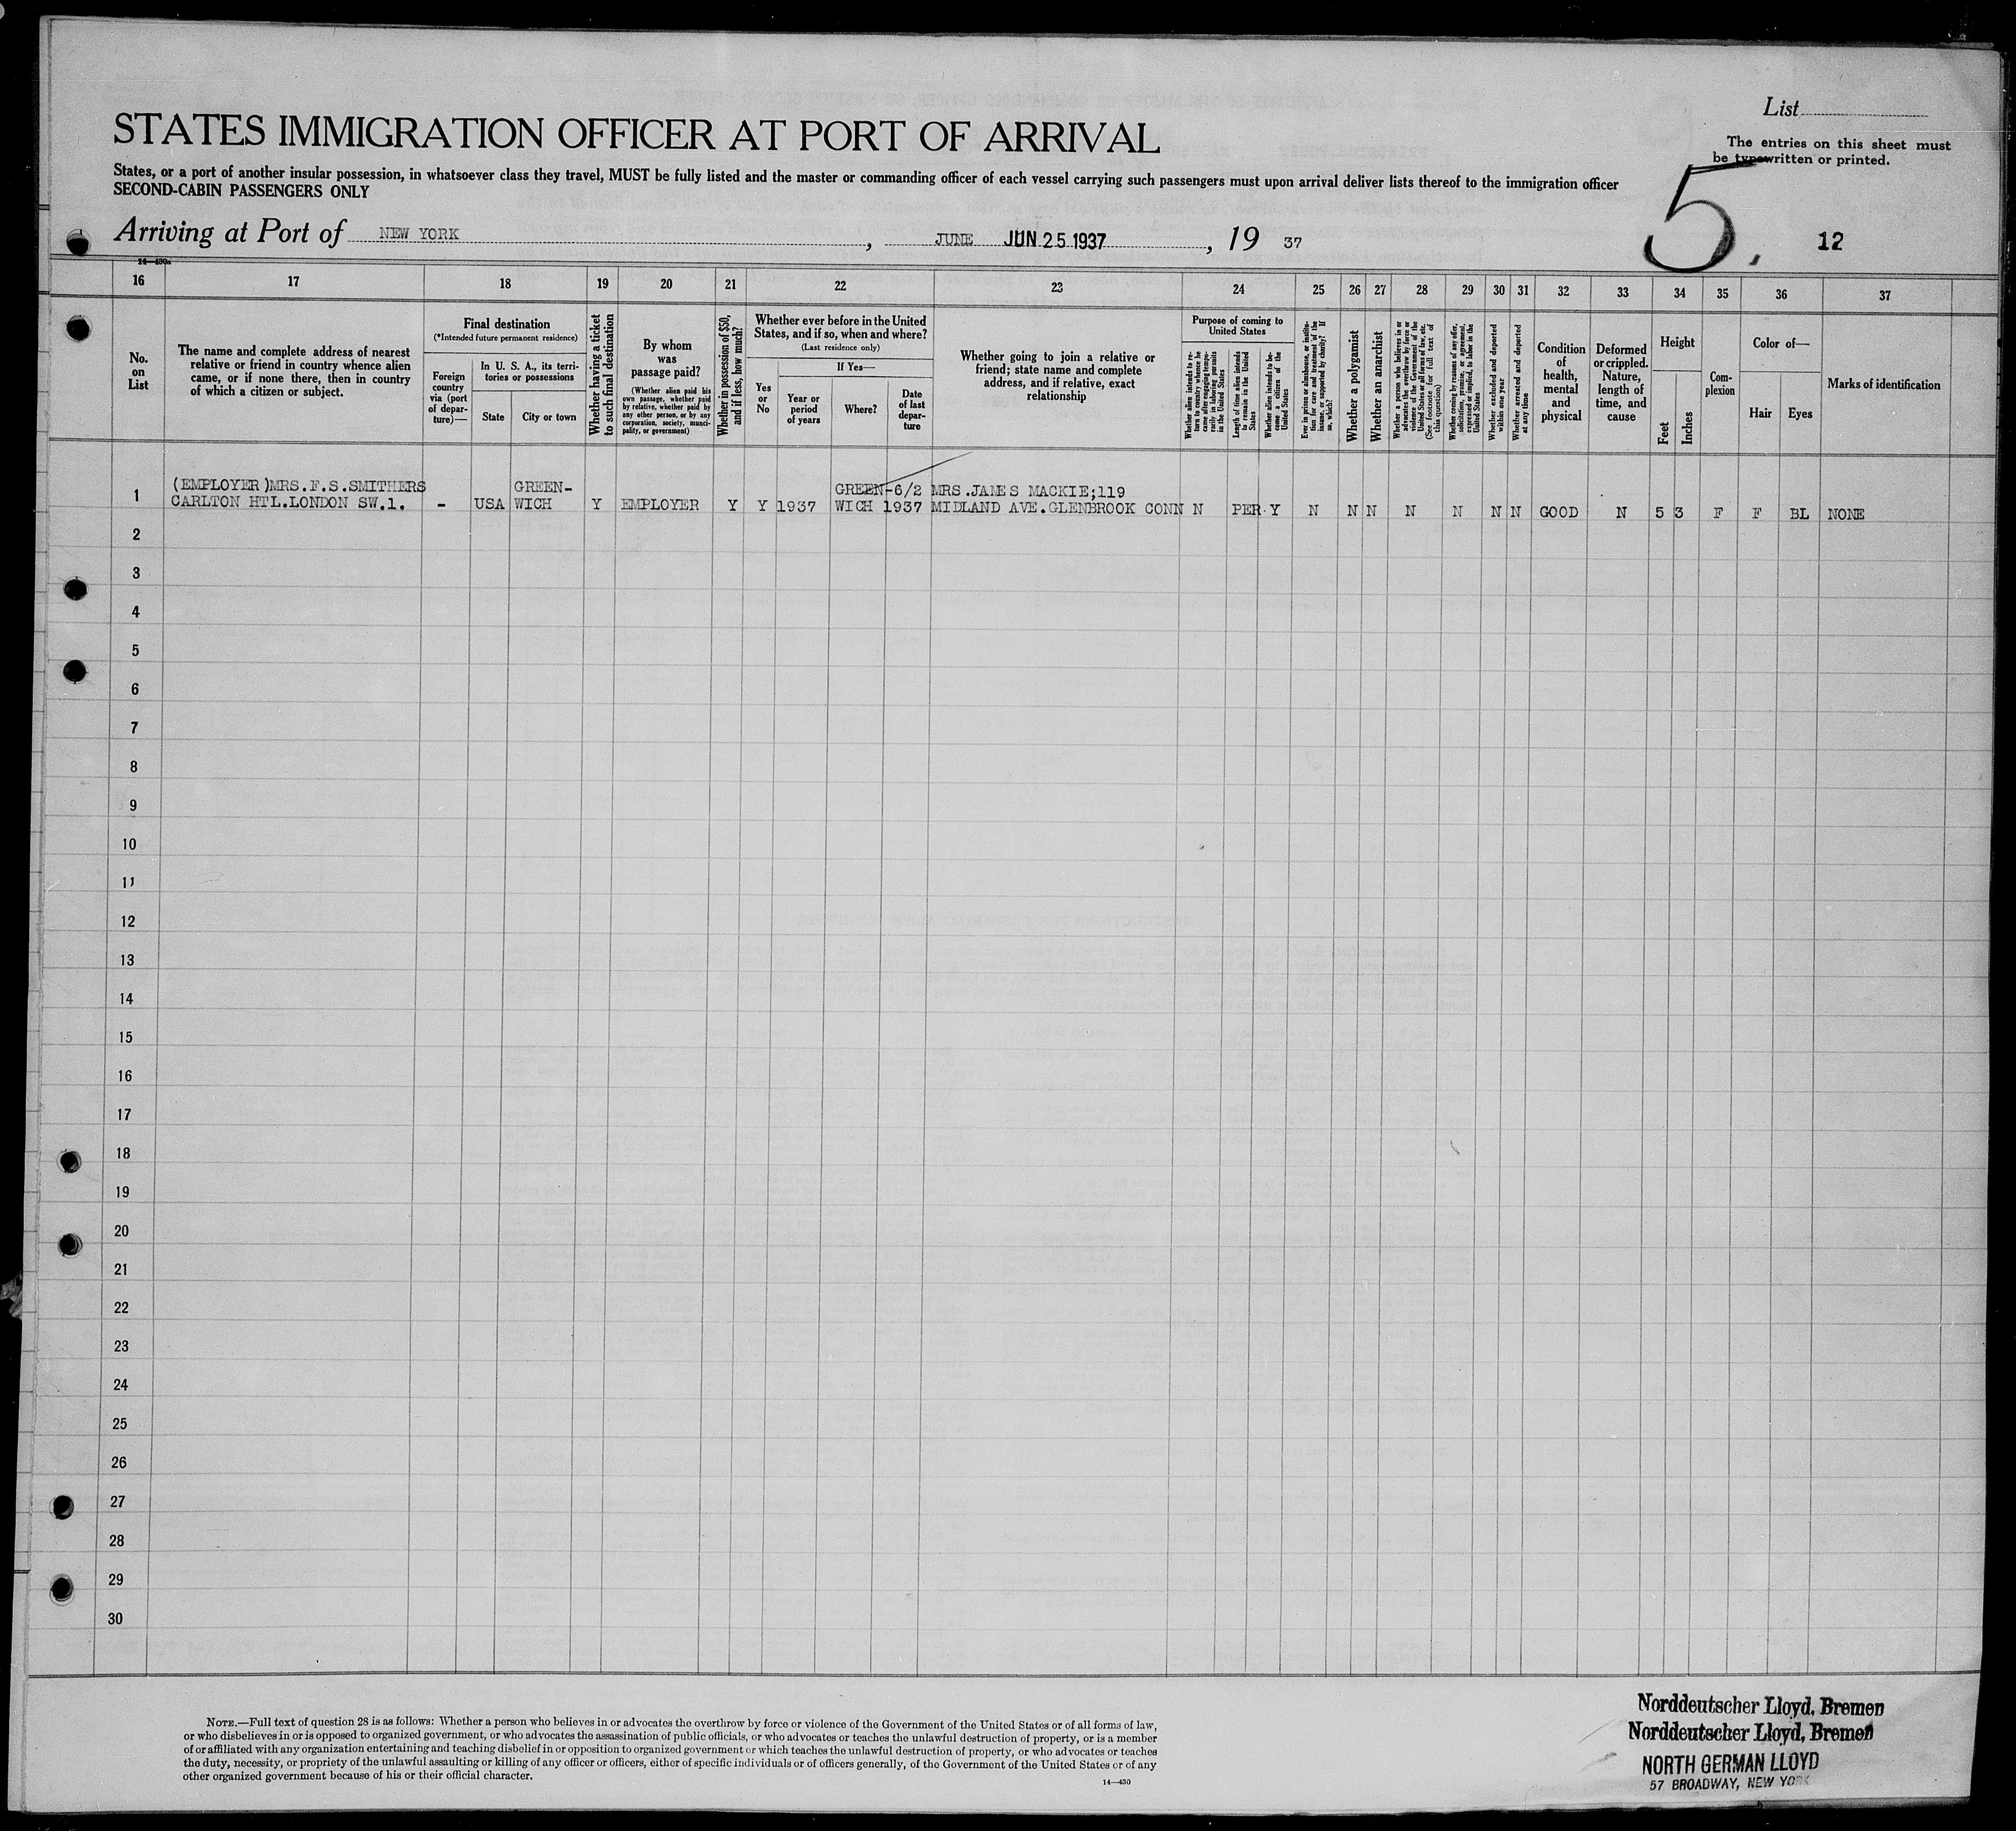 List
STATES IMMIGRATION OFFICER AT PORT OF ARRIVAL
The entries on this sheet must
be typewritten or printed.
States, or a port of another insular possession, in whatsoever class they travel, MUST be fully listed and the master or commanding officer of each vessel carrying such passengers must upon arrival deliver lists thereof to the immigration officer
SECOND-CABIN PASSENGERS ONLY
5.
12
Arriving at Port of NEW YORK, JUNE JUN 25 1937, 19 37
16 17 18 19 20 21 22 23 24 25 26 27 28 29 30 31 32 33 34 35 36 37
No.
on
List
The name and complete address of nearest
relative or friend in country whence alien
came, or if none there, then in country
of which a citizen or subject.
Final destination
(*Intended future permanent residence)
Foreign
country
via (port
of depar-
ture)—
In U. S. A., its terri-
tories or possessions
State
City or town
Whether having a ticket
to such final destination
By whom
was
passage paid?
(Whether alien paid his
own passage, whether paid
by relative, whether paid by
any other person, or by any
corporation, society, munci-
pality, or government)
Whether in possession of $50,
and if less, how much?
Whether ever before in the United
States, and if so, when and where?
(Last residence only)
Yes
or
No
If Yes—
Year or
period
of years
Where?
Date
of last
depar-
ture
Whether going to join a relative or
friend; state name and complete
address, and if relative, exact
relationship
Purpose of coming to
United States
Whether alien intends to re-
turn to country whence he
came after engaging tempo-
rarily in laboring pursuits
in the United States
Length of time alien intends
to remain in the United
States
Whether alien intends to be-
come a citizen of the
United States
Ever in prison or almshouse, or institu-
tion for care and treatment of the
insane, or supported by charity? If
so, which?
Whether a polygamist
Whether an anarchist
Whether a person who believes in or
advocates the overthrow by force or
violence of the Government of the
United States or all forms of law, etc.
(See footnote for full text of
this question)
Whether coming by reasons of any offer,
solicitation, promise, or agreement,
expressed or implied, to labor in the
United States
Whether excluded and deported
within one year
Whether arrested and deported
at any time
Condition
of
health,
mental
and
physical
Deformed
or crippled.
Nature,
length of
time, and
cause
Height
Feet
Inches
Com-
plexion
Color of—
Hair
Eyes
Marks of identification
(EMPLOYER)MRS.F.S.SMITHERS GREEN- GREEN-6/2 MRS.JAMES MACKIE;119
1 CARLTON HTL.LONDON SW.1. - USA WICH Y EMPLOYER Y Y 1937 WICH 1937 MIDLAND AVE.GLENBROOK CONN N PER Y N N N N N N N GOOD N 5 3 F F BL NONE
2
3
4
5
6
7
8
9
10
11
12
13
14
15
16
17
18
19
20
21
22
23
24
25
26
27
28
29
30
NOTE.—Full text of question 28 is as follows: Whether a person who believes in or advocates the overthrow by force or violence of the Government of the United States or of all forms of law,
or who disbelieves in or is opposed to organized government, or who advocates the assassination of public officials, or who advocates or teaches the unlawful destruction of property, or is a member
of or affiliated with any organization entertaining and teaching disbelief in or opposition to organized government or which teaches the unlawful destruction of property, or who advocates or teaches
the duty, necessity, or propriety of the unlawful assaulting or killing of any officer or officers, either of specific individuals or of officers generally, of the Government of the United States or of any
other organized government because of his or their official character.
14—430
Norddeutscher Lloyd, Bremen
Norddeutscher Lloyd, Bremen
NORTH GERMAN LLOYD
57 BROADWAY, NEW YORK